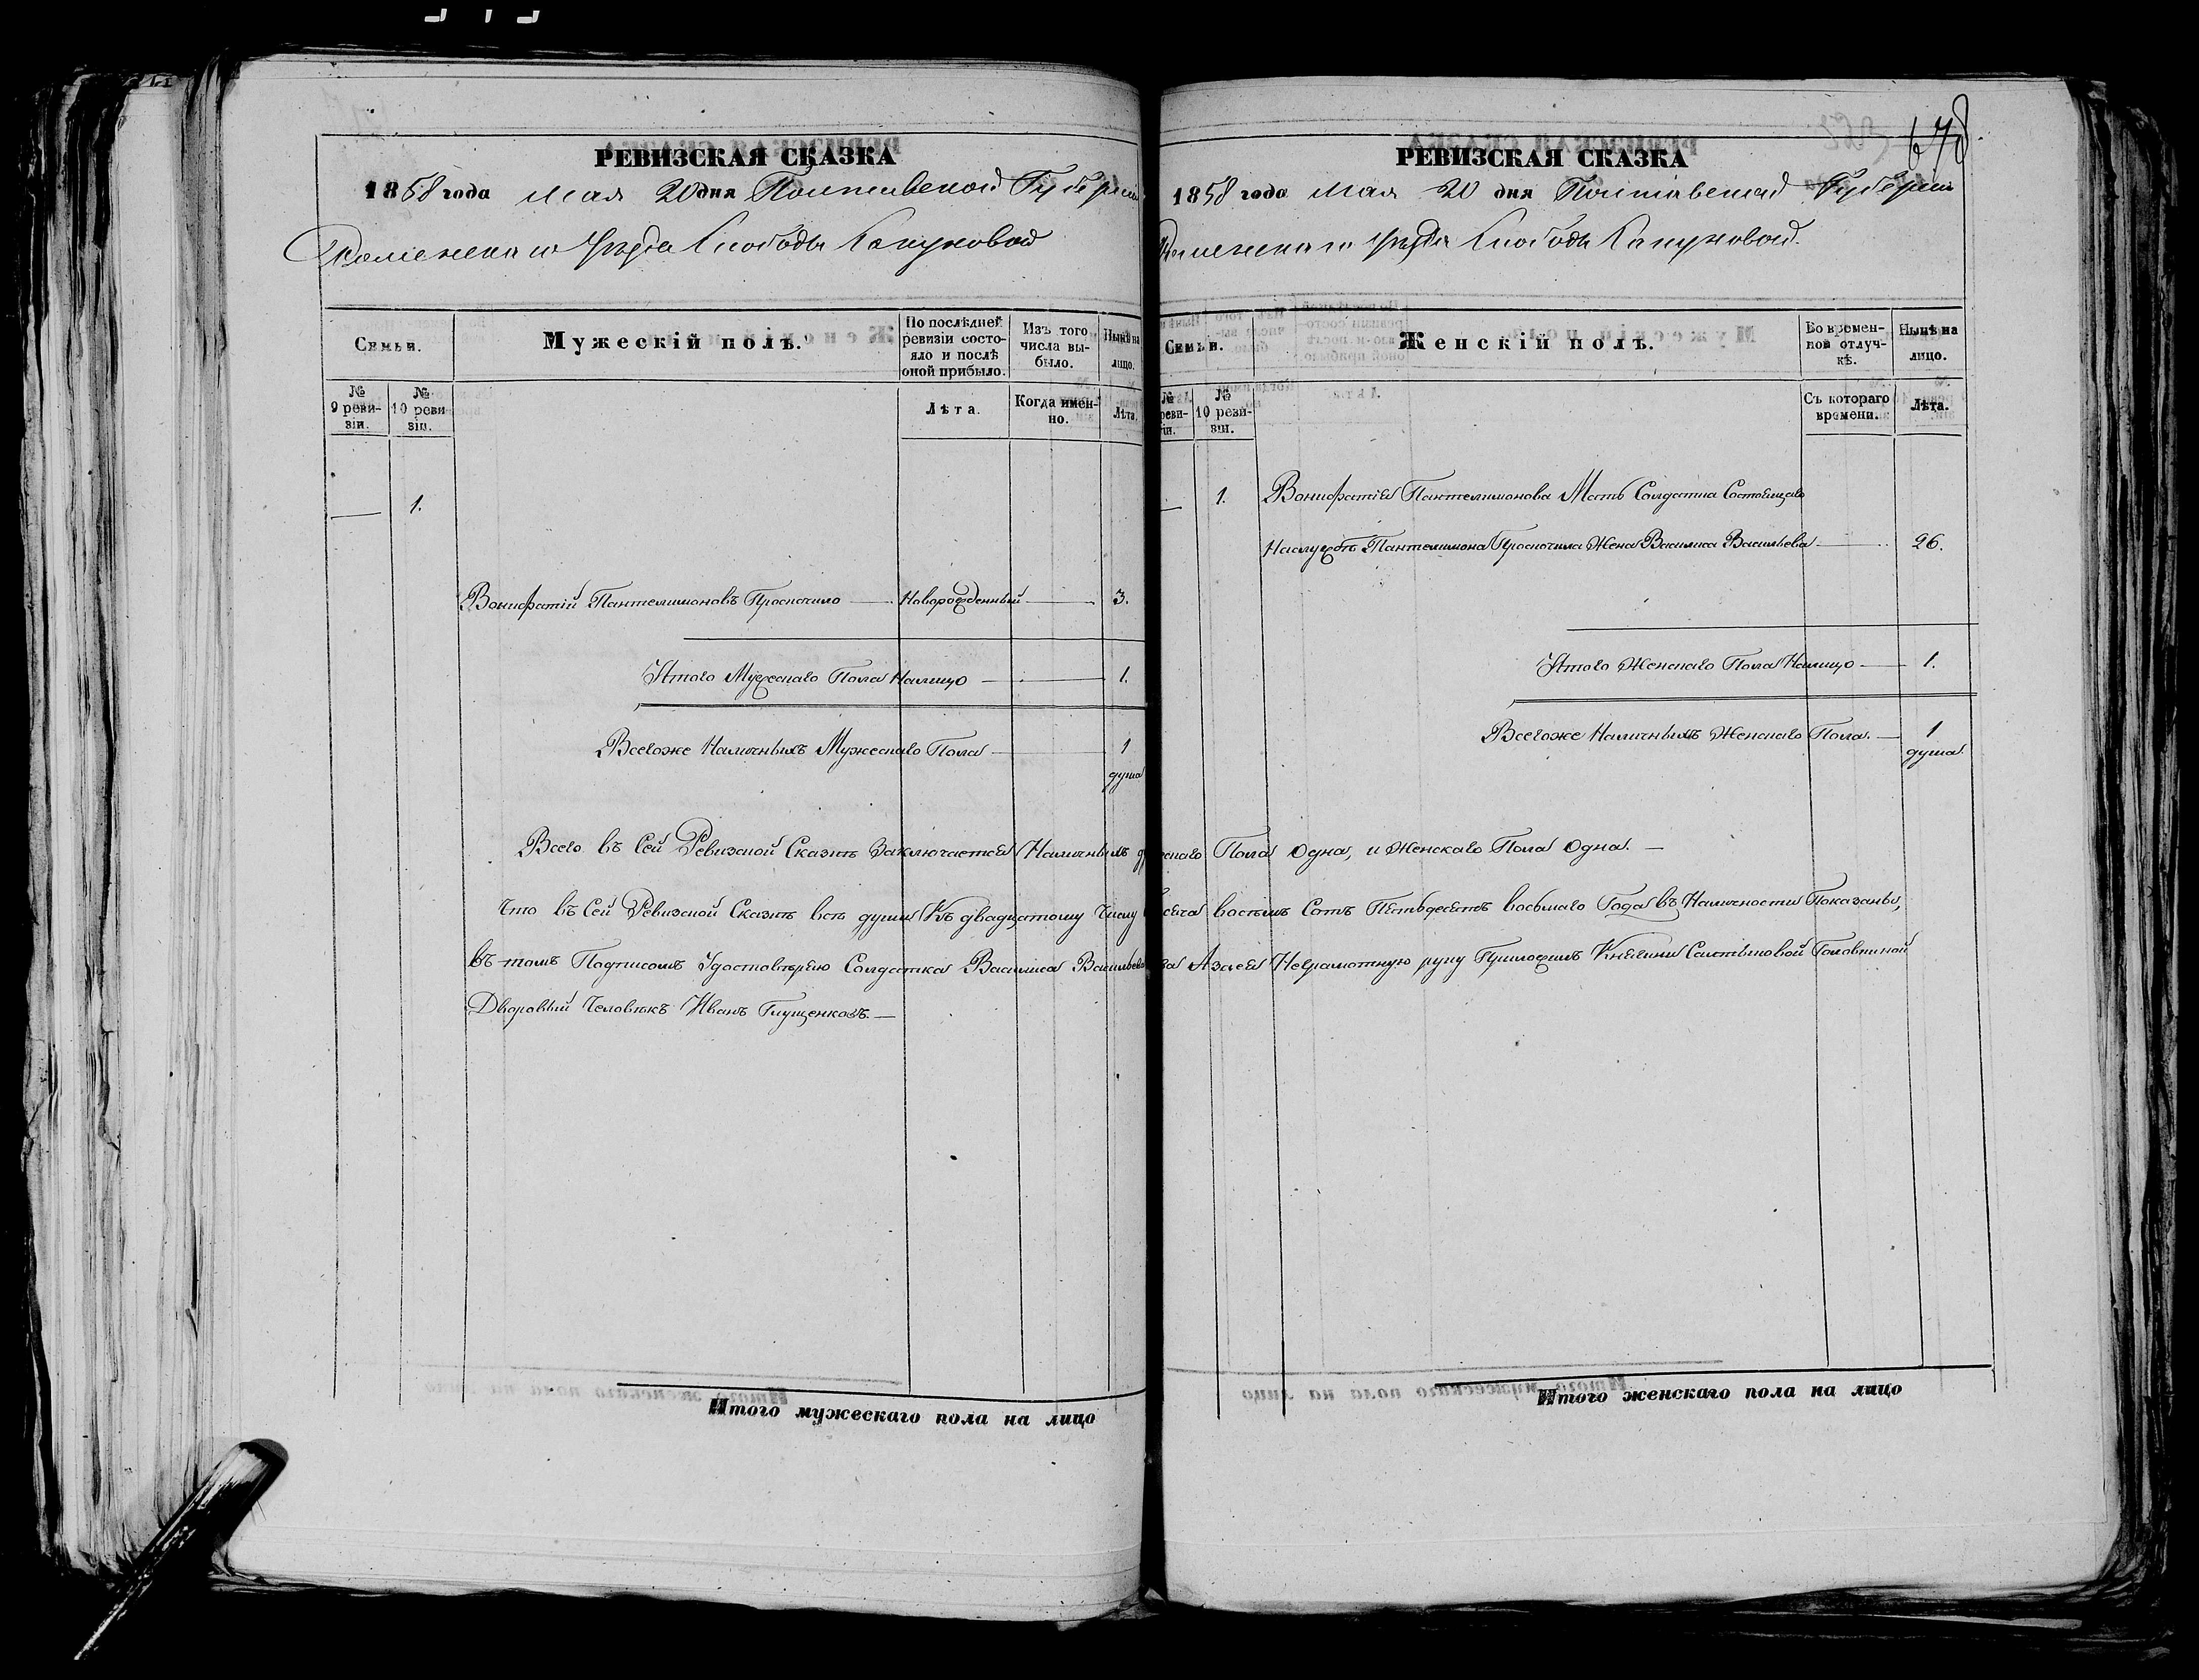 РЕВИЗСКАЯ СКАЗКА
1858 года Мая 20 дня Полтавской Губерніи
Роменскаго Уѣзда Слободы Капуновой
Семьи.
Мужескій полъ.
По послѣдней ревизіи состояло и послѣ оной прибыло.
Изъ того числа выбыло.
Нынѣ на лицо.
№ 9 ревизіи.
№ 10 ревизіи.
Лѣта.
Когда именно.
Лѣта.
1.
Вонифатій Пантелимоновъ Просночило — Новорожденный — 3.
Итого Мужескаго Пола Налицо — 1.
Всегоже Наличныхъ Мужескаго Пола — 1
душа
Всего въ Сей Ревизской Сказкѣ Заключается Наличныхъ
Что въ Сей Ревизской Сказкѣ всѣ души Къ двадцатому Числу
въ томъ Подписомъ Удостовѣряю Солдатка Василиса Васильева
Дворовый Человѣкъ Иванъ Глущенковъ. —
Итого мужескаго пола на лицо
678
РЕВИЗСКАЯ СКАЗКА
1858 года Мая 20 дня Полтавской Губерніи
Роменскаго Уѣзда Слободы Капуновой.
Семьи.
Женскій полъ.
Во временной отлучкѣ.
Нынѣ на лицо.
№ ревизіи.
№ 10 ревизіи.
Съ котораго времени.
Лѣта.
1. Вонифатія Пантелимонова Мать Солдатка Состоящаго
Наслужбѣ Пантелимона Просночила Жена Василиса Васильева — 26.
Итого Женскаго Пола Налицо — 1.
Всегоже Наличныхъ Женскаго Пола. — 1
душа.
Пола Одна, и Женскаго Пола Одна. —
восемь Сотъ Пятьдесятъ восьмаго Года въ Наличности Показаны,
Азанея Неграмотную руку Приложилъ Княгини Салтыковой Головкиной
Итого женскаго пола на лицо